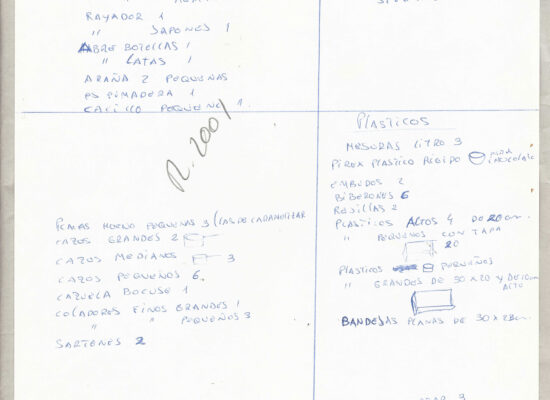 RAYADOR 1
" JAPONES 1
ABRE BOTELLAS 1
" LATAS 1
ARAÑA 2 PEQUEÑAS
ESPUMADERA 1
CAZILLO PEQUEÑO 1.
R. 2001
PLACAS HORNO PEQUEÑAS 3 (LAS DE CARAMELIZAR
CAZOS GRANDES 2
CAZOS MEDIANOS 3
CAZOS PEQUEÑOS 6.
CAZUELA BOCUSE 1
COLADORES FINOS GRANDES 1
" " PEQUEÑOS 3
SARTENES 2
PLASTICOS
MESURAS LITRO 3
PIREX PLASTICO RIGIDO para chocolate
EMBUDOS 2
BIBERONES 6
REJILLAS 2
PLASTICOS ALTOS 4 DE 20 cm.
" PEQUEÑOS CON TAPA
20
PLASTICOS PEQUEÑOS
" GRANDES DE 30 x 20 Y DE 10 cm
ALTO
BANDEJAS PLANAS DE 30 x 23 cm.